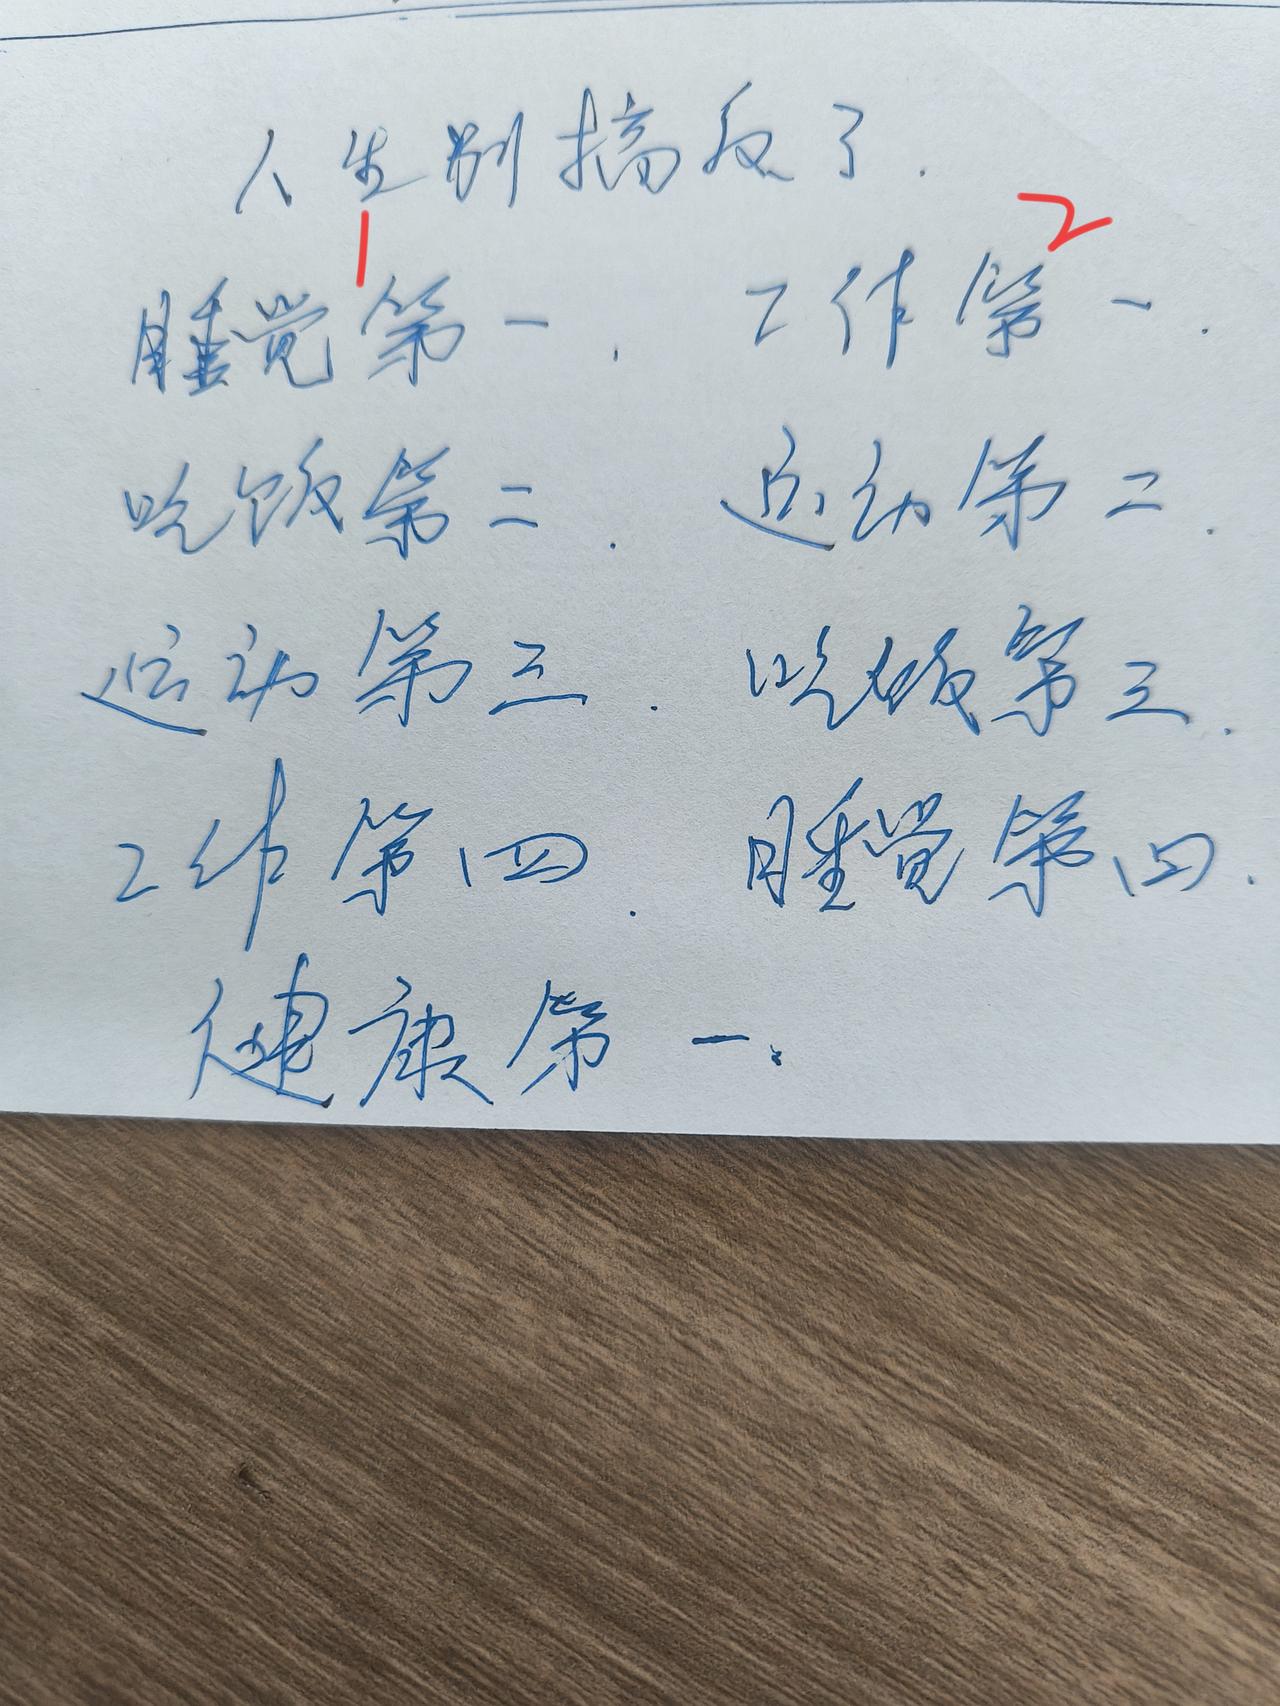 人生别搞反了.
1 2
睡觉第一. 工作第一.
吃饭第二. 运动第二.
运动第三. 吃饭第三.
工作第四. 睡觉第四.
健康第一.